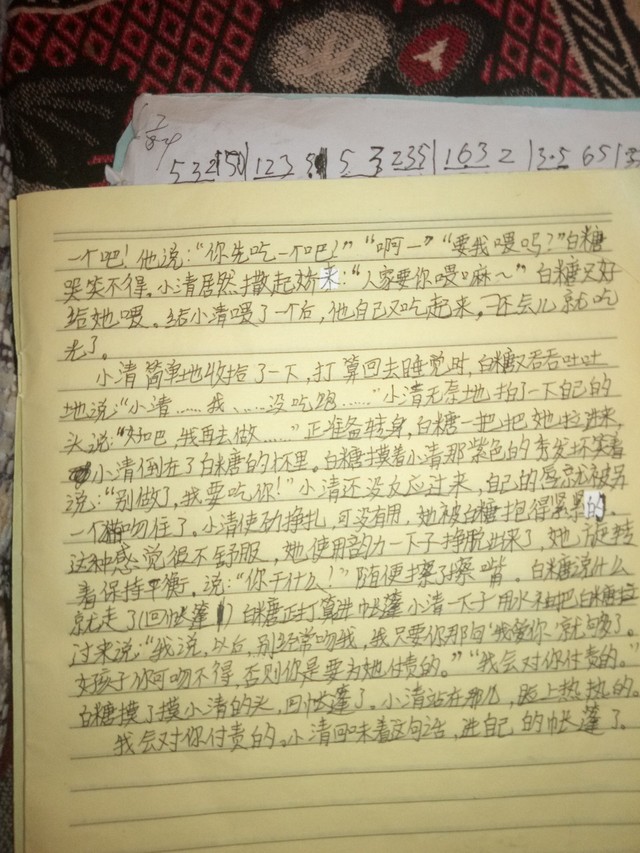 532150|123 5 3 235|163 2|3·5 65|3
一个吧!他说:“你先吃一个吧?”“啊一”“要我喂吗?”白糖
哭笑不得。小清居然撒起娇来:“人家要你喂嘛~”白糖只好
给她喂。给小清喂了一个后,他自己又吃起来,不会儿就吃
光了。
小清简单地收拾了一下,打算回去睡觉时,白糖又吞吞吐吐
地说“小清……我……没吃饱……”小清无奈地拍了一下自己的
头说:“好吧,我再去做……”正准备转身,白糖一把把她拉进来,
小清倒在了白糖的怀里。白糖摸着小清那紫色的秀发坏笑着
说:“别做了,我要吃你!”小清还没反应过来,自己的唇就被另
一个吻住了。小清使劲挣扎,可没有用,她被白糖抱得紧紧的。
这种感觉很不舒服,她使用韵力一下子挣脱出来了,她旋转
着保持平衡。说:“你干什么!”随便擦了擦嘴。白糖没说什么
就走了(回帐篷)白糖正打算进帐篷小清一下子用水袖把白糖拉
过来说:“我说,以后,别经常吻我,我只要你那句‘我爱你’就够了。
女孩子你可吻不得,否则你是要为她付责的。”“我会对你付责的。”
白糖摸了摸小清的头,回帐篷了。小清站在那儿,脸上热热的。
我会对你付责的。小清回味着这句话,进自己的帐篷了。